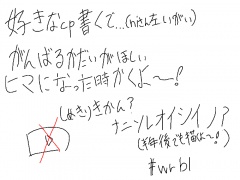 好きなcp書くて…(hiさん左いがい)
がんばるかだいがほしい
ヒマになった時がくよ〜!
(ぬきりきかん?
ナニソレオイシイノ?
(半年後でも描くよ〜!)
#wrbl